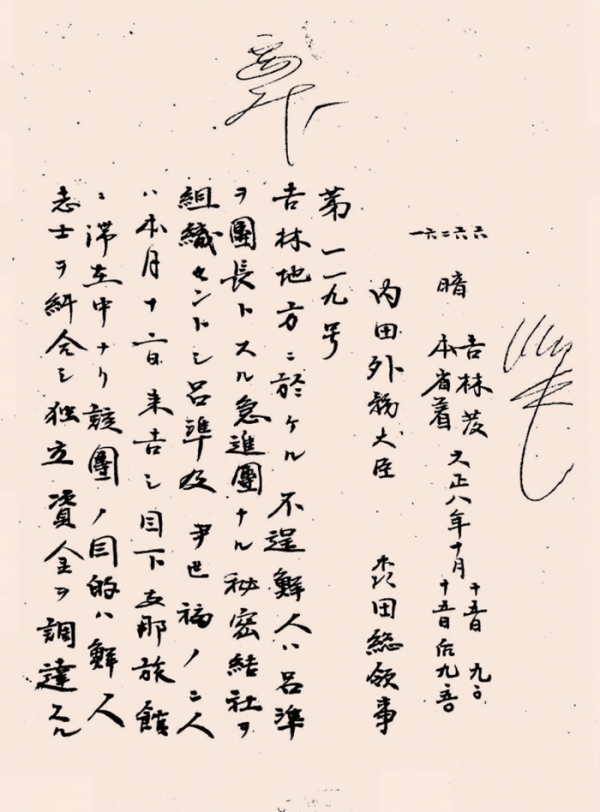 一六二六六
暗
吉林發 大正八年十月 十五日 九、〇
本省着 十五日 后九、五〇
内田外務大臣
森田総領事
第一一九号
吉林地方ニ於ケル不逞鮮人ハ呂準
ヲ團長トスル急進團ナル秘密結社ヲ
組織セントシ呂準及尹世福ノ二人
ハ本月十二日来吉シ目下支那旅館
ニ滞在中ナリ該團ノ目的ハ鮮人
志士ヲ糾合シ独立資金ヲ調達スル